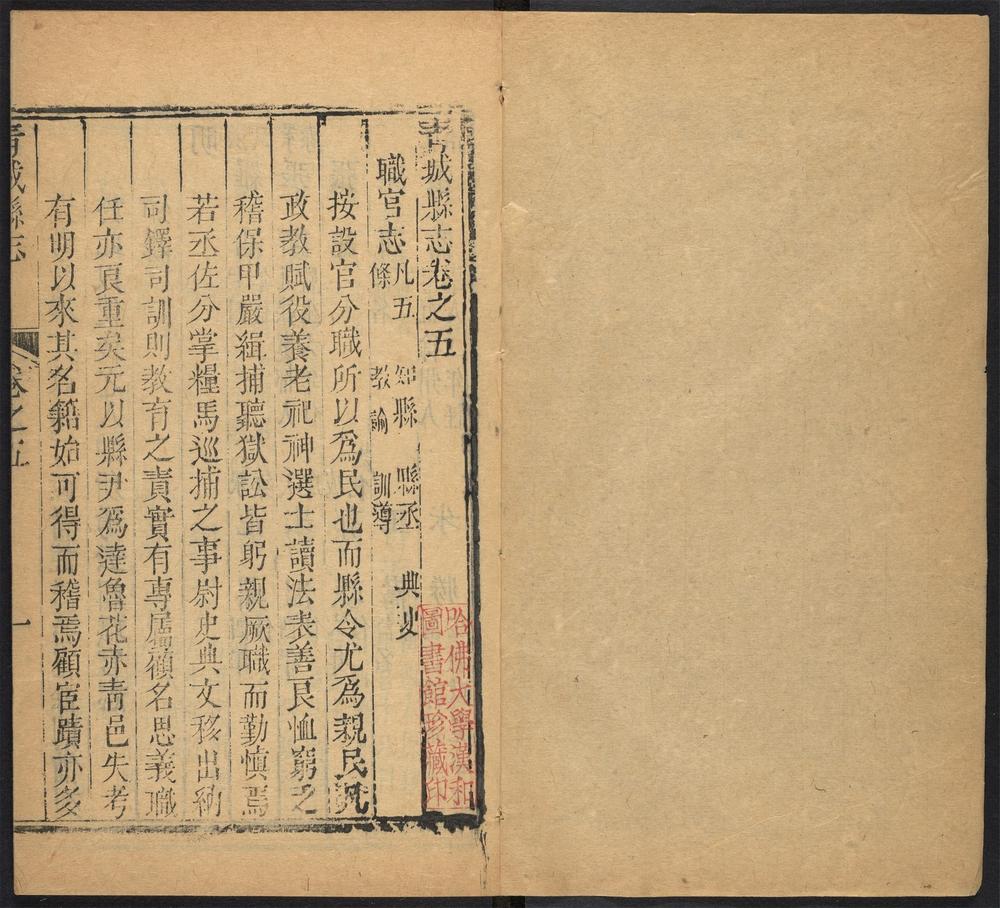 青城縣志卷之五
職官志 凡五條 知縣 縣丞 典史 教諭 訓導
按設官分職所以爲民也而縣令尤爲親民凡
政教賦役養老祀神選士讀法表善良恤窮乏
稽保甲嚴緝捕聽獄訟皆躬親厥職而勤慎焉
若丞佐分掌糧馬巡捕之事尉史典文移出納
司鐸司訓則教育之責實有專屬顧名思義職
任亦良重矣元以縣尹爲達魯花赤青邑失考
有明以來其名籍始可得而稽焉顧宦蹟亦多
青城縣志 卷之五 一
哈佛大學漢和
圖書館珍藏印